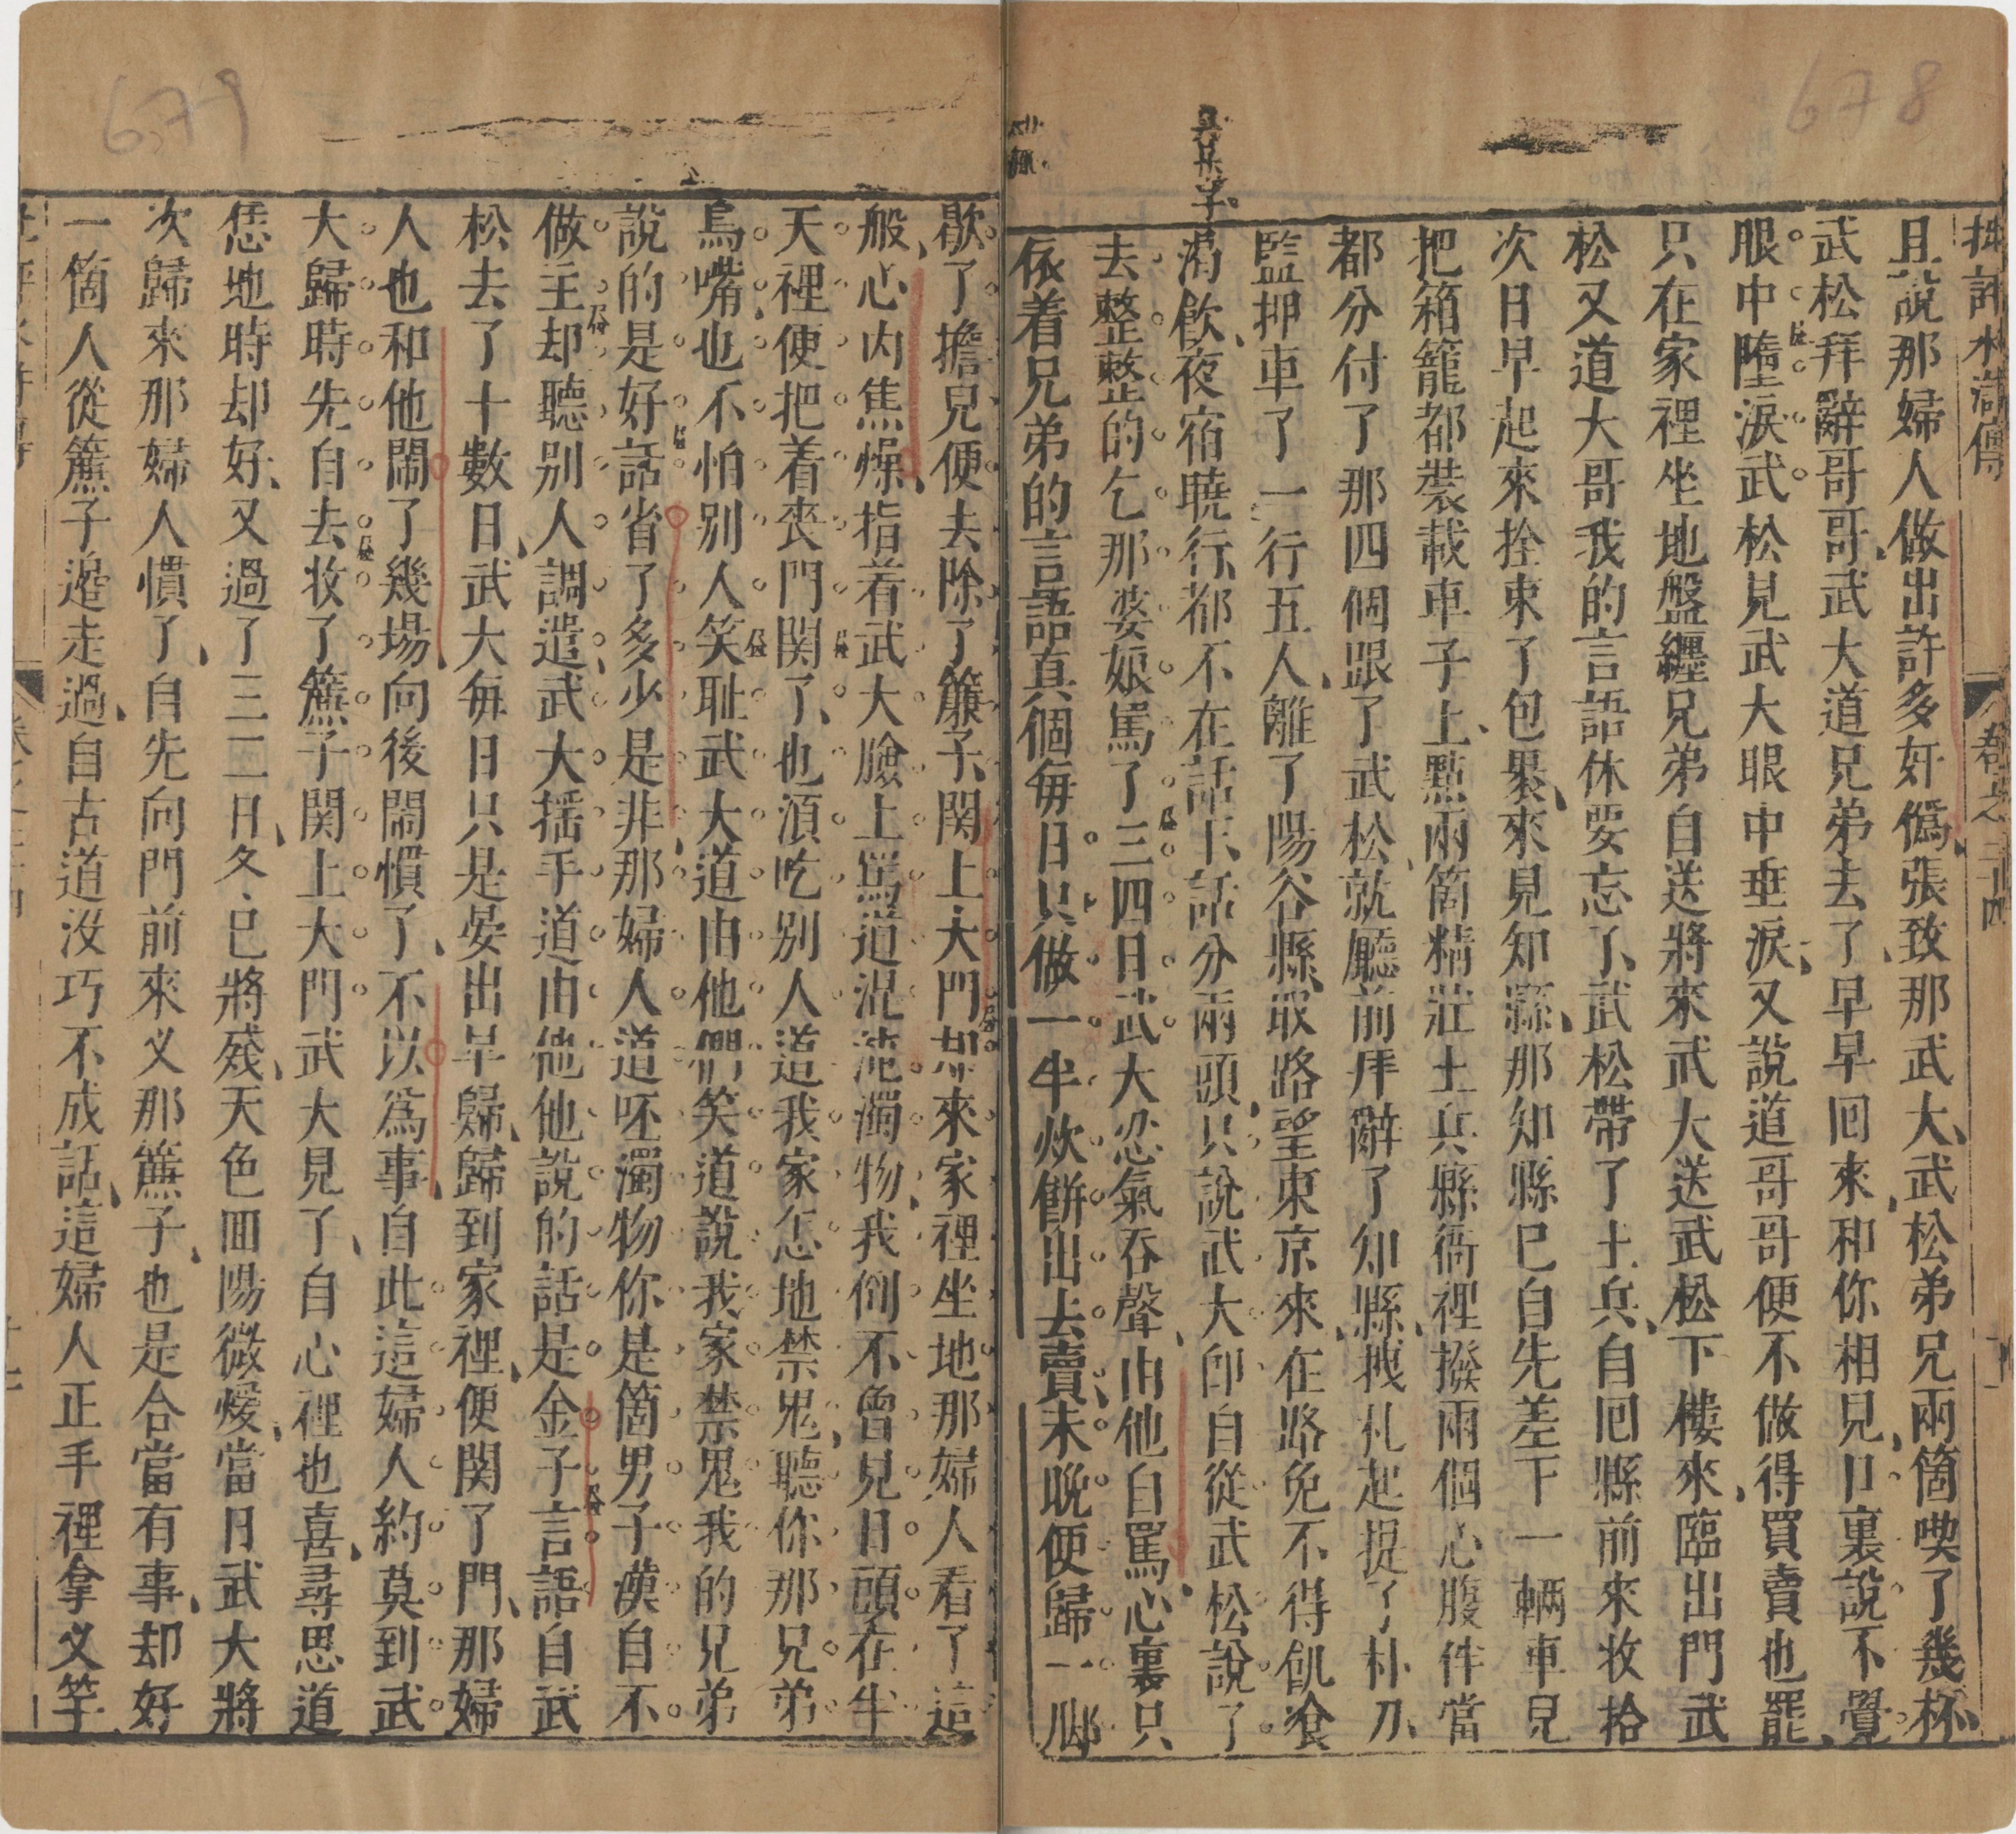 678
批評水滸傳
卷之二十四
且說那婦人做出許多奸僞張致那武大武松弟兄兩箇喫了幾杯
武松拜辭哥哥武大道兄弟去了早早回來和你相見口裏說不覺
眼中墮淚武松見武大眼中垂淚又說道哥哥便不做得買賣也罷
只在家裡坐地盤纏兄弟自送將來武大送武松下樓來臨出門武
松又道大哥我的言語休要忘了武松帶了土兵自囘縣前來收拾
次日早起來拴束了包裹來見知縣那知縣已自先差下一輛車兒
把箱籠都裝載車子上點兩箇精壯土兵縣衙裡撥兩個心腹伴當
都分付了那四個跟了武松就廳前拜辭了知縣拽札起提了朴刀
監押車了一行五人離了陽谷縣取路望東京來在路免不得飢湌
渴飲夜宿曉行都不在話下話分兩頭只說武大郎自從武松說了
去整整的乞那婆娘罵了三四日武大忍氣吞聲由他自罵心裏只
依着兄弟的言語真個每日只做一半炊餅出去賣未晚便歸一脚
679
歇了擔兒便去除了簾子関上大門却來家裡坐地那婦人看了這
般心内焦燥指着武大臉上罵道混沌濁物我倒不曾見日頭在半
天裡便把着丧門関了也湏吃别人道我家怎地禁鬼聽你那兄弟
鳥嘴也不怕别人笑耻武大道由他們笑道說我家禁鬼我的兄弟
說的是好話省了多少是非那婦人道呸濁物你是箇男子漢自不
做主却聽别人調遣武大揺手道由他他說的話是金子言語自武
松去了十數日武大每日只是晏出早歸歸到家裡便関了門那婦
人也和他鬧了幾場向後鬧慣了不以爲事自此這婦人約莫到武
大歸時先自去收了簾子関上大門武大見了自心裡也喜尋思道
恁地時却好又過了三二日冬已將殘天色囬陽微煖當日武大將
次歸來那婦人慣了自先向門前來义那簾子也是合當有事却好
一箇人從簾子邉走過自古道没巧不成話這婦人正手裡拿义竿